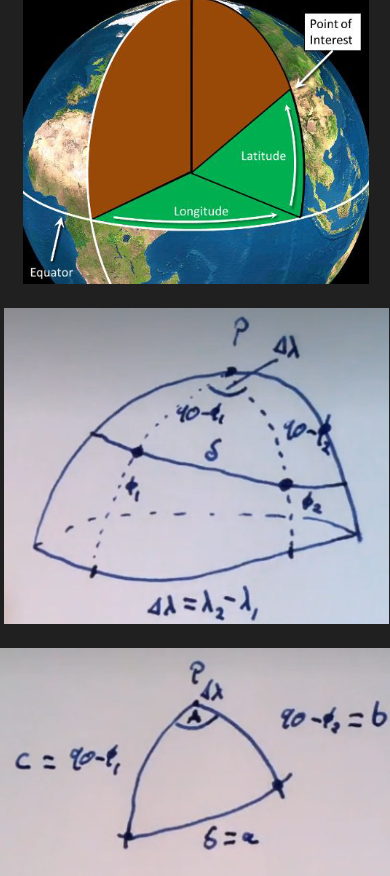 Point of
Interest
Latitude
Longitude
Equator
P
Δλ
90-ϕ₁
90-ϕ₂
δ
ϕ₁
ϕ₂
Δλ = λ₂-λ₁
P
Δλ
A
90-ϕ₂ = b
c = 90-ϕ₁
δ = a